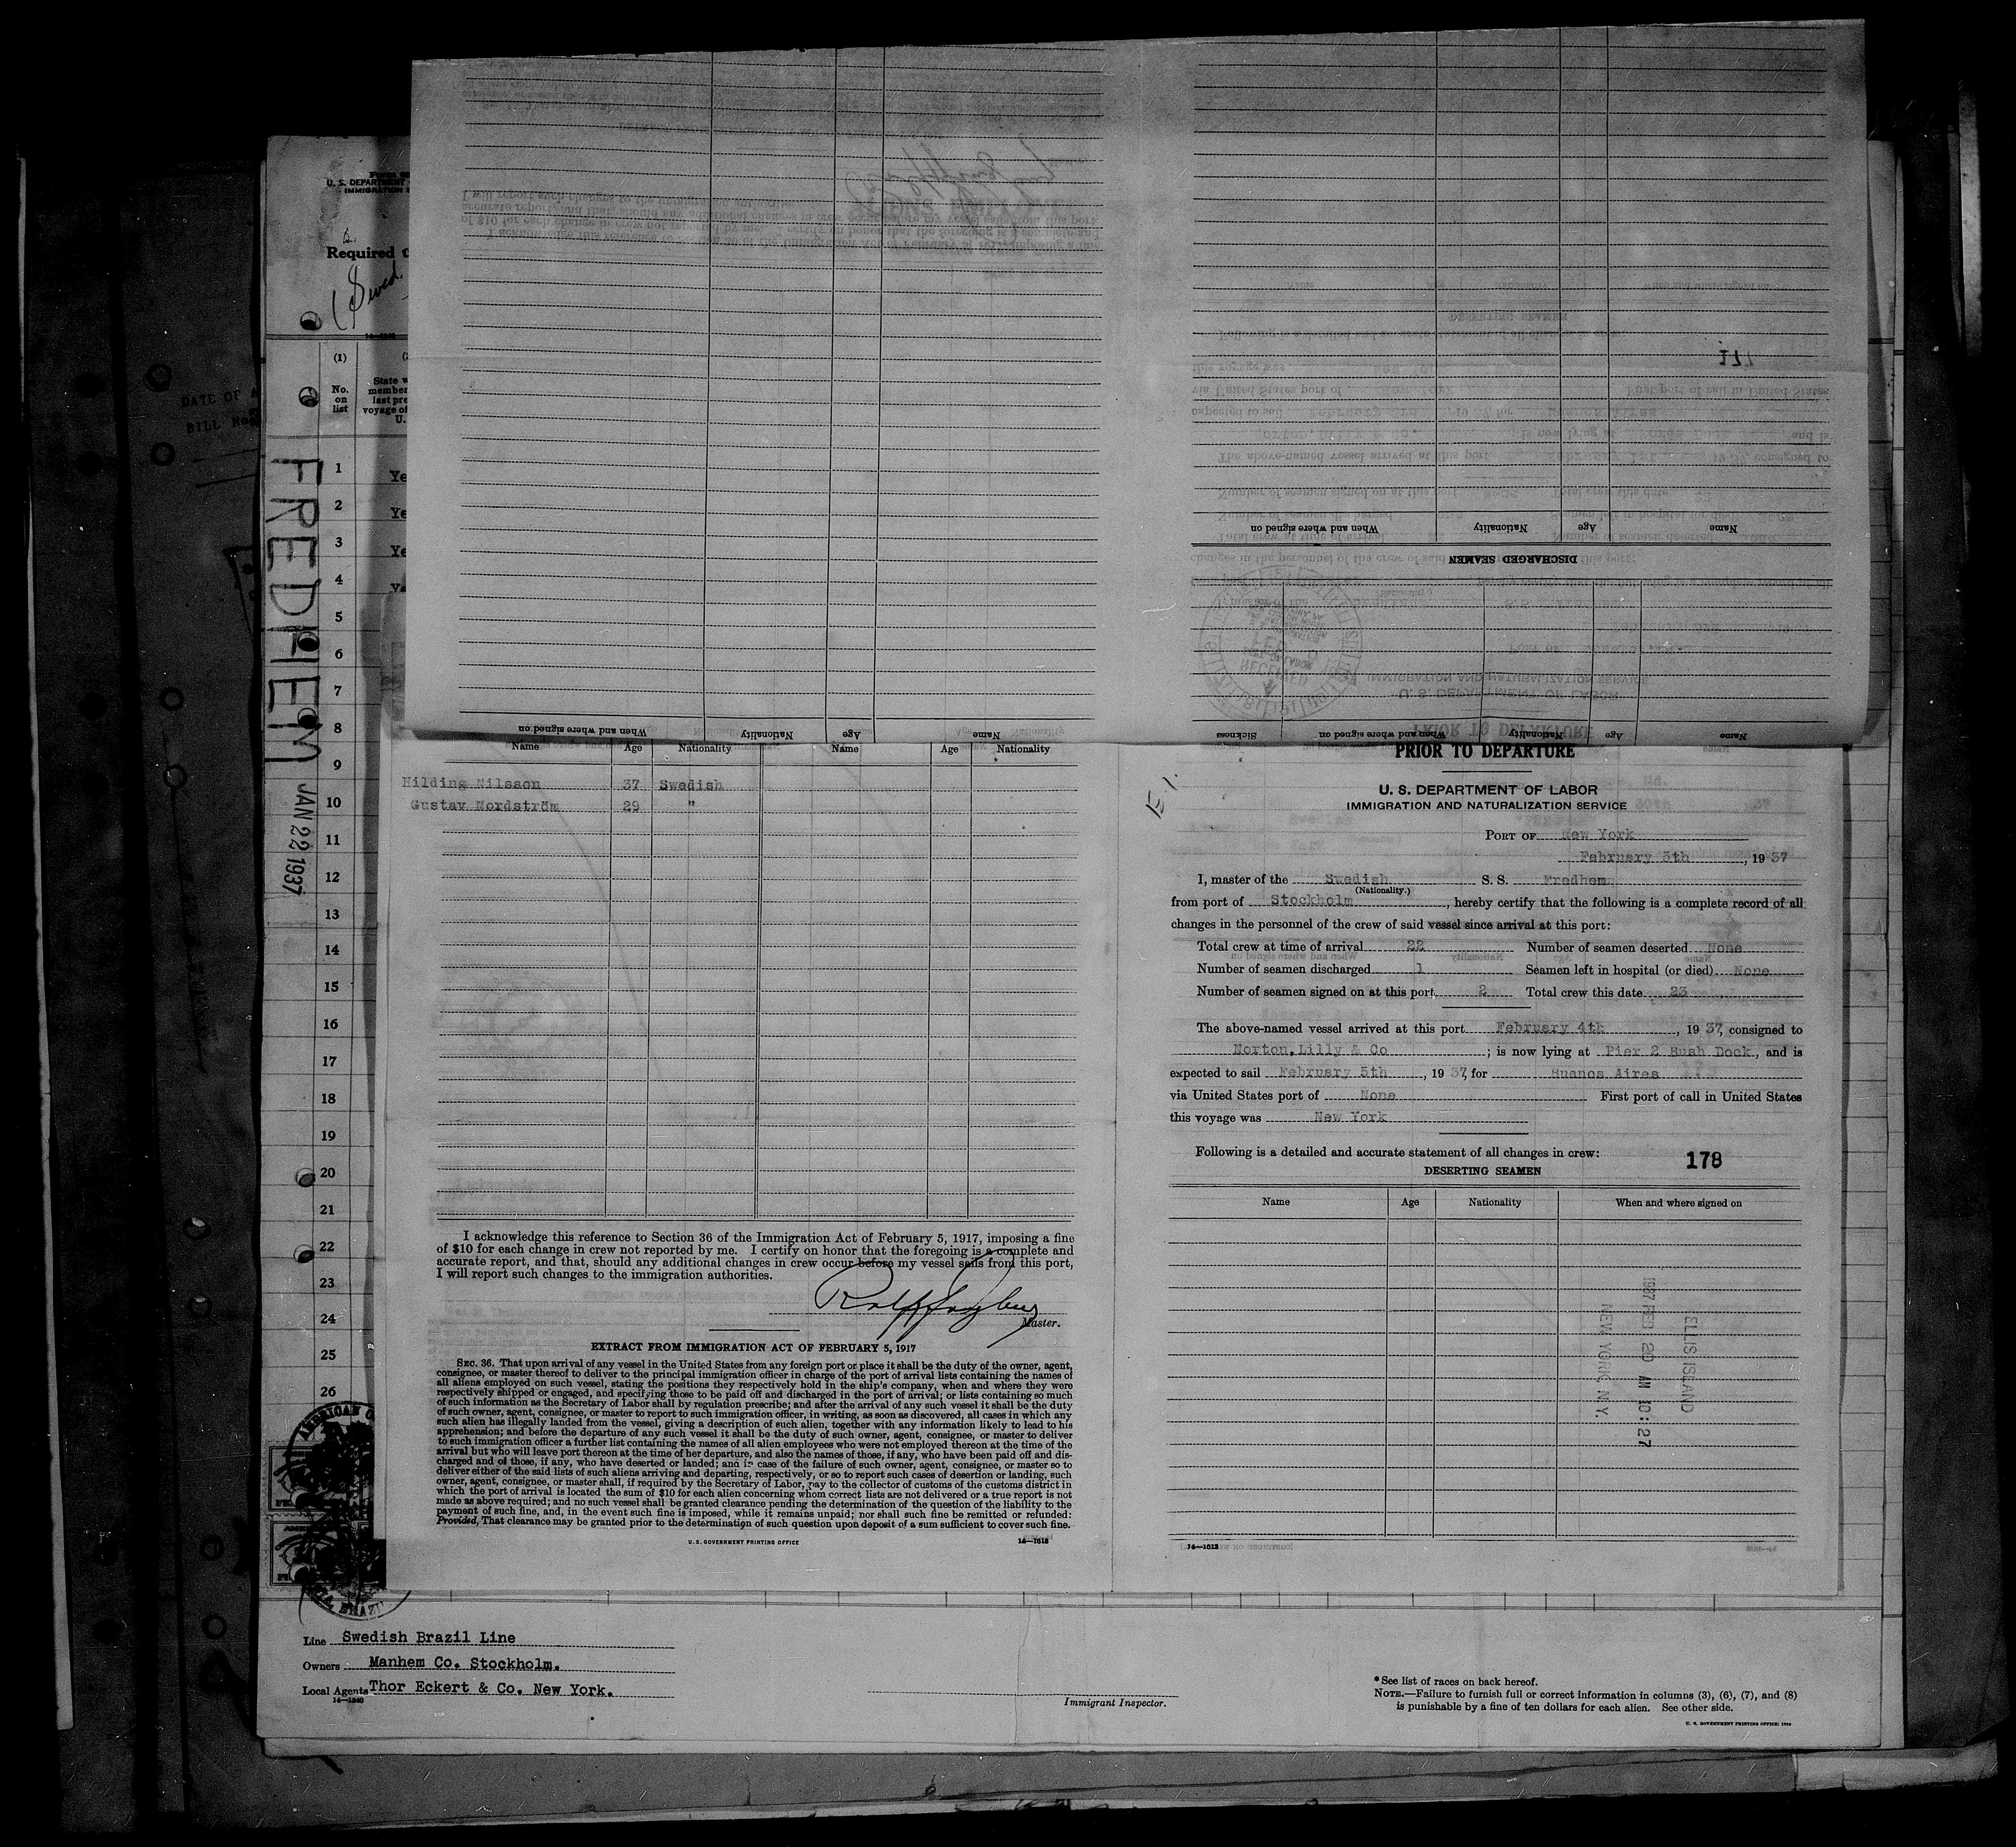 U. S. DEPARTMENT
IMMIGRATION
Required
(Swed
(1)
No.
on
list
1
2
3
4
5
6
7
8
9
10
11
12
13
14
15
16
17
18
19
20
21
22
23
24
25
26
FREDHEM
JAN 22 1937
DATE OF
BILL
Ye
Ye
Ye
When and where signed on Nationality Age Name
DISCHARGED SEAMEN
When and where signed on Nationality Age Name
Sickness When and where signed on Nationality Age Name
Name Age Nationality Name Age Nationality
Hilding Nilsson 37 Swedish
Gustav Nordström 29 "
I acknowledge this reference to Section 36 of the Immigration Act of February 5, 1917, imposing a fine
of $10 for each change in crew not reported by me. I certify on honor that the foregoing is a complete and
accurate report, and that, should any additional changes in crew occur before my vessel sails from this port,
I will report such changes to the immigration authorities.
Master.
EXTRACT FROM IMMIGRATION ACT OF FEBRUARY 5, 1917
SEC. 36. That upon arrival of any vessel in the United States from any foreign port or place it shall be the duty of the owner, agent,
consignee, or master thereof to deliver to the principal immigration officer in charge of the port of arrival lists containing the names of
all aliens employed on such vessel, stating the positions they respectively hold in the ship's company, when and where they were
respectively shipped or engaged, and specifying those to be paid off and discharged in the port of arrival; or lists containing so much
of such information as the Secretary of Labor shall by regulation prescribe; and after the arrival of any such vessel it shall be the duty
of such owner, agent, consignee, or master to report to such immigration officer, in writing, as soon as discovered, all cases in which any
such alien has illegally landed from the vessel, giving a description of such alien, together with any information likely to lead to his
apprehension; and before the departure of any such vessel it shall be the duty of such owner, agent, consignee, or master to deliver
to such immigration officer a further list containing the names of all alien employees who were not employed thereon at the time of the
arrival but who will leave port thereon at the time of her departure, and also the names of those, if any, who have been paid off and dis-
charged and of those, if any, who have deserted or landed; and in case of the failure of such owner, agent, consignee, or master so to
deliver either of the said lists of such aliens arriving and departing, respectively, or so to report such cases of desertion or landing, such
owner, agent, consignee, or master shall, if required by the Secretary of Labor, pay to the collector of customs of the customs district in
which the port of arrival is located the sum of $10 for each alien concerning whom correct lists are not delivered or a true report is not
made as above required; and no such vessel shall be granted clearance pending the determination of the question of the liability to the
payment of such fine, and, in the event such fine is imposed, while it remains unpaid; nor shall such fine be remitted or refunded:
Provided, That clearance may be granted prior to the determination of such question upon deposit of a sum sufficient to cover such fine.
U. S. GOVERNMENT PRINTING OFFICE 14—1613
PRIOR TO DEPARTURE
U. S. DEPARTMENT OF LABOR
IMMIGRATION AND NATURALIZATION SERVICE
PORT OF New York
February 5th, 1937
I, master of the Swedish S. S. Fredhem
(Nationality.)
from port of Stockholm, hereby certify that the following is a complete record of all
changes in the personnel of the crew of said vessel since arrival at this port:
Total crew at time of arrival 22 Number of seamen deserted None
Number of seamen discharged 1 Seamen left in hospital (or died) None
Number of seamen signed on at this port 2 Total crew this date 23
The above-named vessel arrived at this port February 4th, 1937, consigned to
Norton, Lilly & Co; is now lying at Pier 2 Bush Dock, and is
expected to sail February 5th, 1937, for Buenos Aires
via United States port of None First port of call in United States
this voyage was New York
Following is a detailed and accurate statement of all changes in crew:
178
DESERTING SEAMEN
Name Age Nationality When and where signed on
ELLIS ISLAND
1937 FEB 20 AM 10:27
NEW YORK, N.Y.
14—1613
Line Swedish Brazil Line
Owners Manhem Co. Stockholm.
Local Agents Thor Eckert & Co. New York.
14—1240
Immigrant Inspector.
*See list of races on back hereof.
NOTE.—Failure to furnish full or correct information in columns (3), (6), (7), and (8)
is punishable by a fine of ten dollars for each alien. See other side.